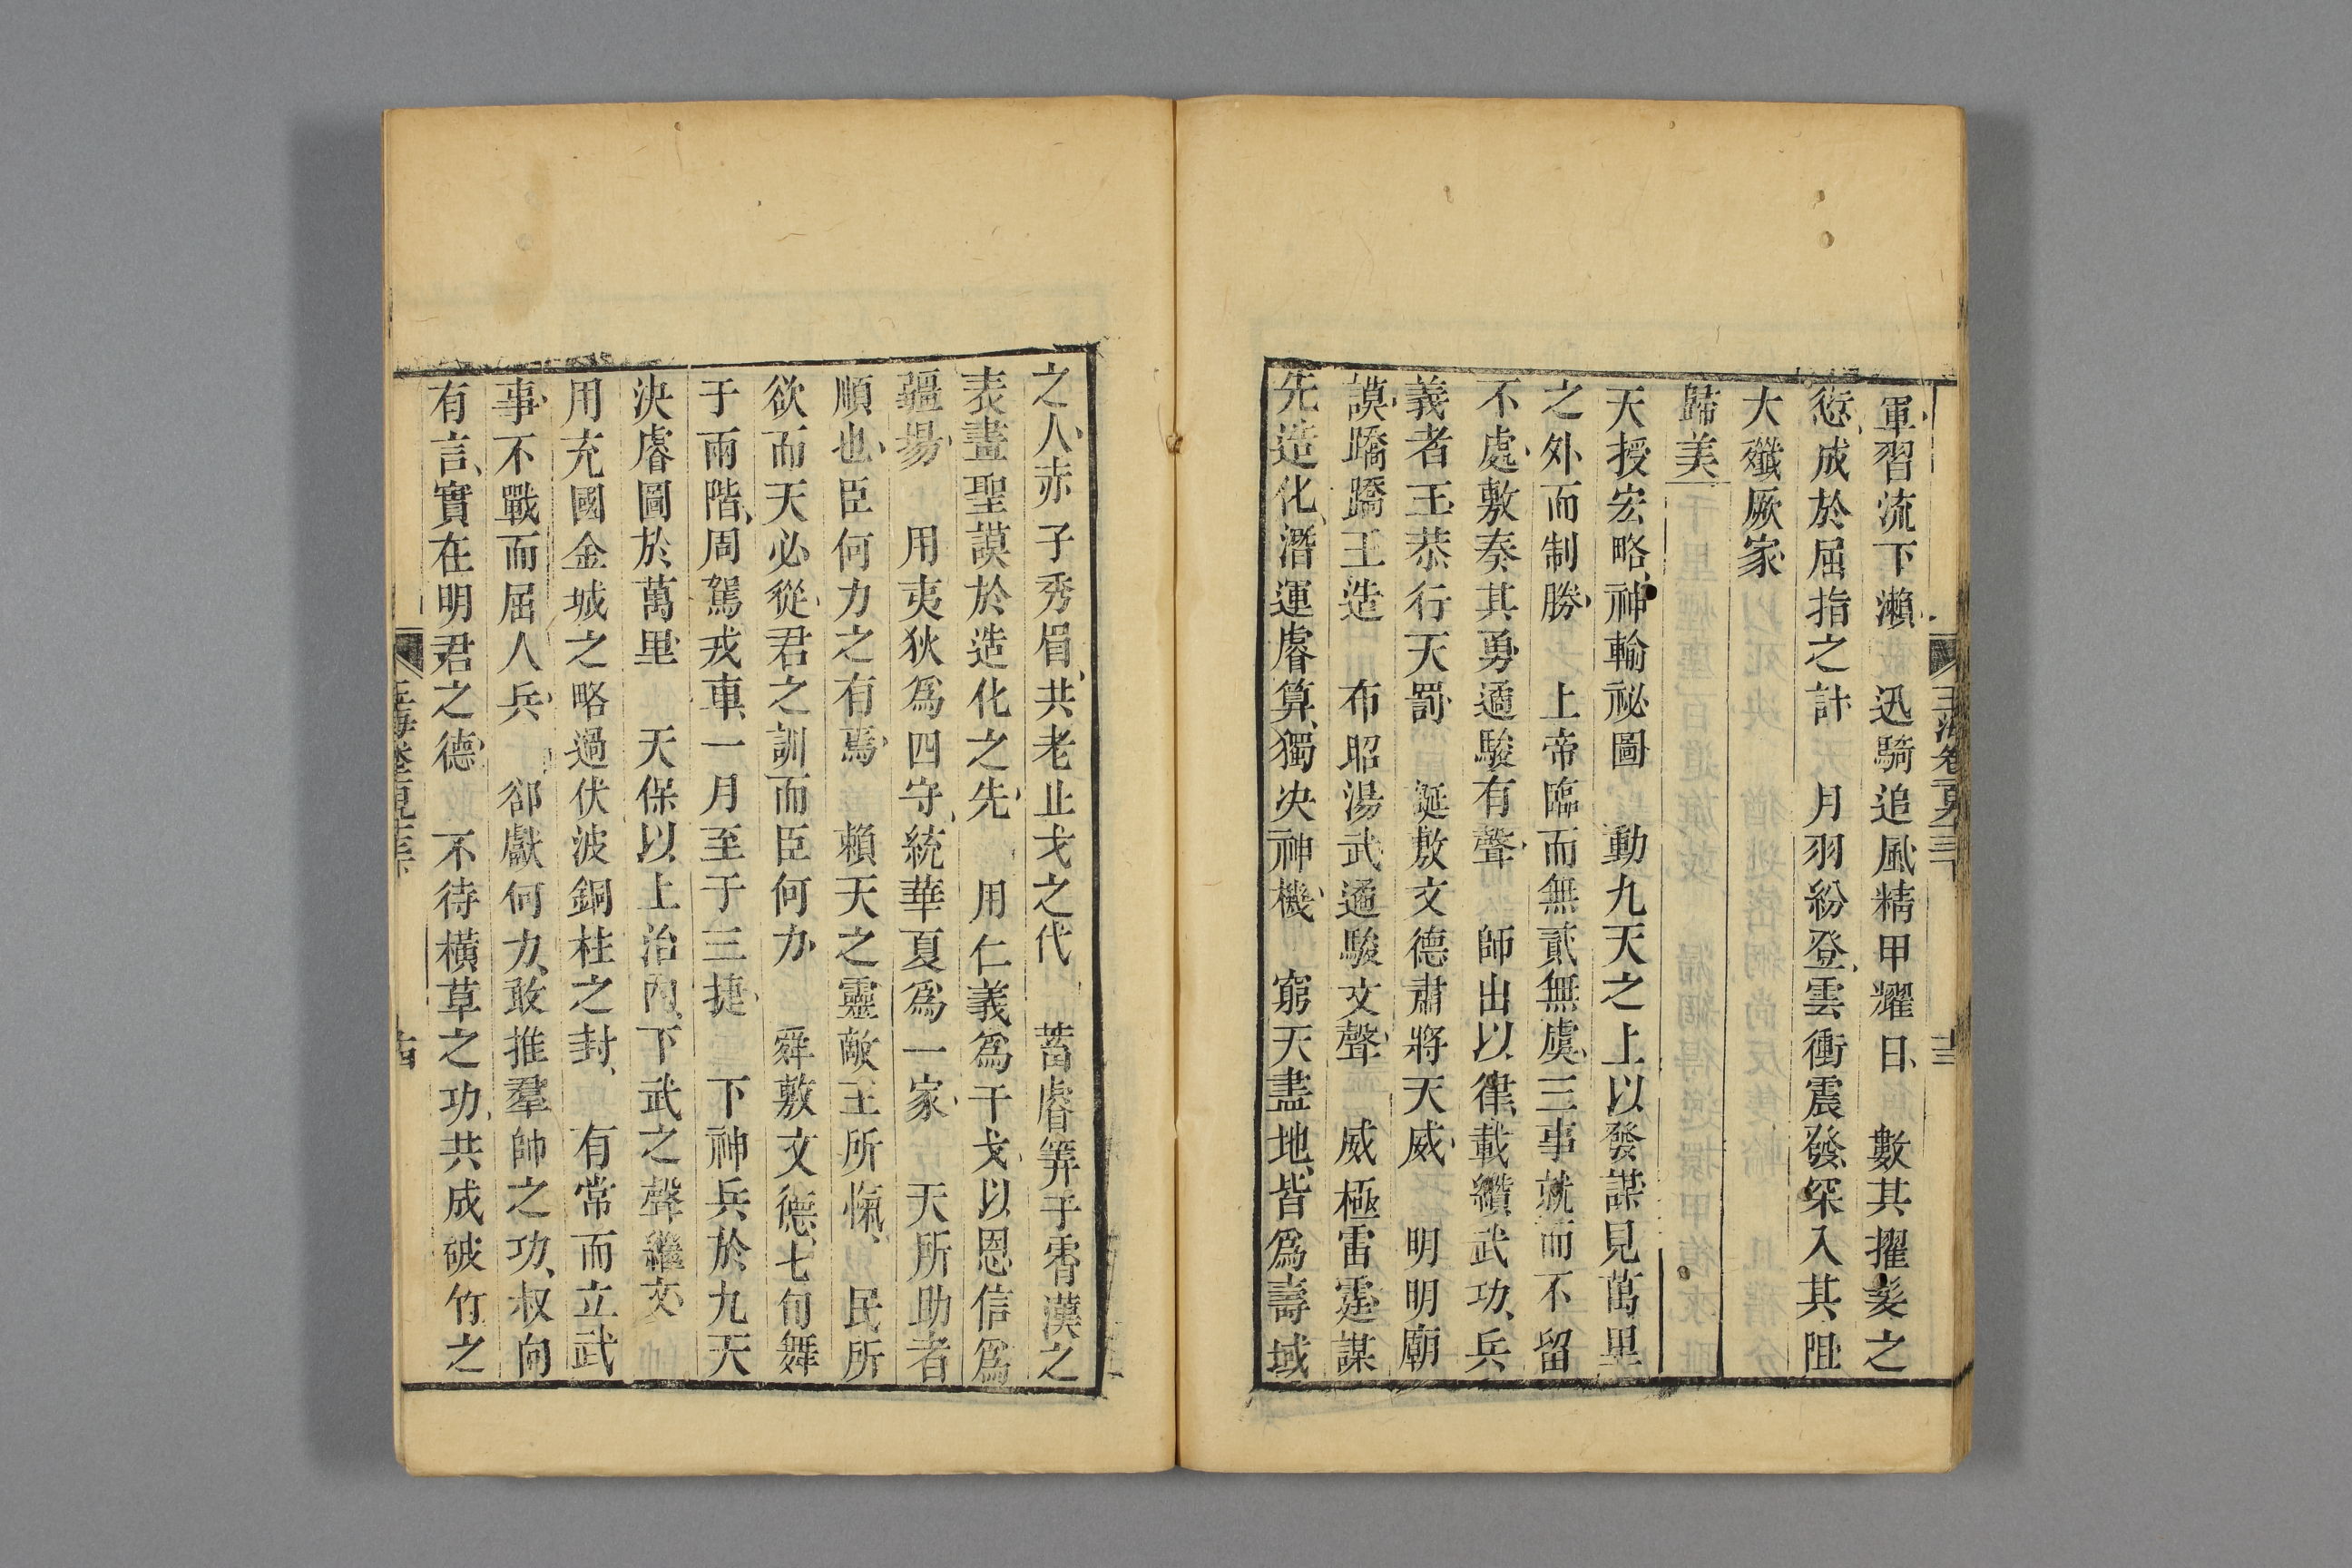 軍習流下瀨　迅騎追風精甲耀日　數其擢髮之
愆成於屈指之計　月羽紛登雲衝震發罙入其阻
大殲厥家
歸美
天授宏略神輸祕圖　動九天之上以發謀見萬里
之外而制勝　上帝臨而無貳無虞三事就而不留
不處敷奏其勇遹駿有聲　師出以律載纘武功兵
義者王恭行天罰　誕敷文德肅將天威　明明廟
謨蹻蹻王造　布昭湯武遹駿文聲　威極雷霆謀
先造化潛運睿算獨決神機　窮天盡地皆爲壽域
玉海卷二百三
十三
之人赤子秀眉共老止戈之代　蓄睿筭于霄漢之
表畫聖謨於造化之先　用仁義爲干戈以恩信爲
疆埸　用夷狄爲四守統華夏爲一家　天所助者
順也臣何力之有焉　賴天之靈敵王所愾　民所
欲而天必從君之訓而臣何力　舜敷文德七旬舞
于兩階周駕戎車一月至于三捷　下神兵於九天
決睿圖於萬里　天保以上治內下武之聲繼文
用充國金城之略過伏波銅柱之封　有常而立武
事不戰而屈人兵　郤獻何力敢推羣帥之功叔向
有言實在明君之德　不待橫草之功共成破竹之